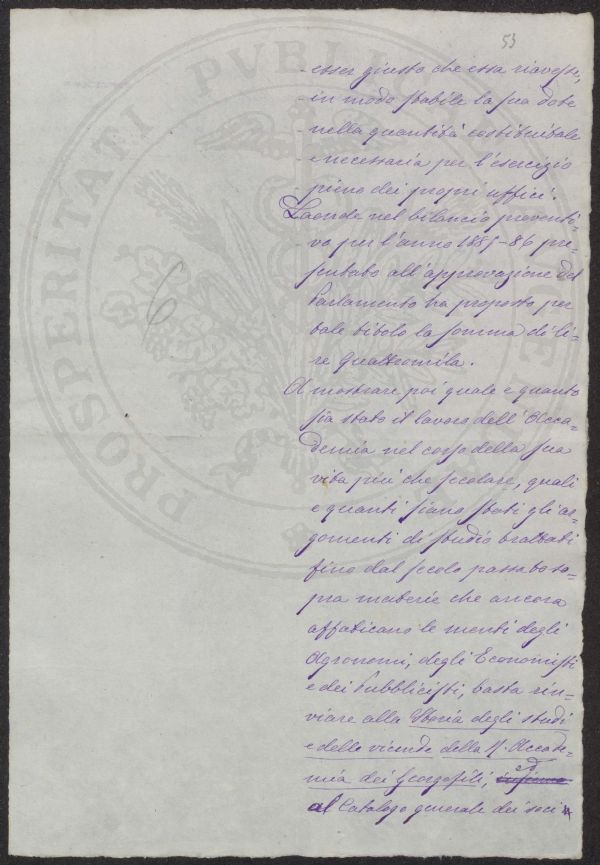 53
PROSPERITATI PVBLICAE
6
esser giusto che essa riavesse,
in modo stabile la sua dote
nella quantità costituibile
e necessaria per l'esercizio
pieno dei propri uffici.
Laonde nel bilancio preventi-
vo per l'anno 1885-86 pre-
sentato all'approvazione del
Parlamento ha proposto per
tale titolo la somma di li-
re Quattromila.
A mostrare poi quale e quanto
sia stato il lavoro dell'Acca-
demia nel corso della sua
vita più che secolare, quali
e quanti siano stati gli ar-
gomenti di studio trattati
fino dal secolo passato so-
pra materie che ancora
affaticano le menti degli
Agronomi, degli Economisti
e dei Pubblicisti, basta rin-
viare alla Storia degli studi
e delle vicende della R. Accade-
mia dei Georgofili, ed
al Catalogo generale dei soci